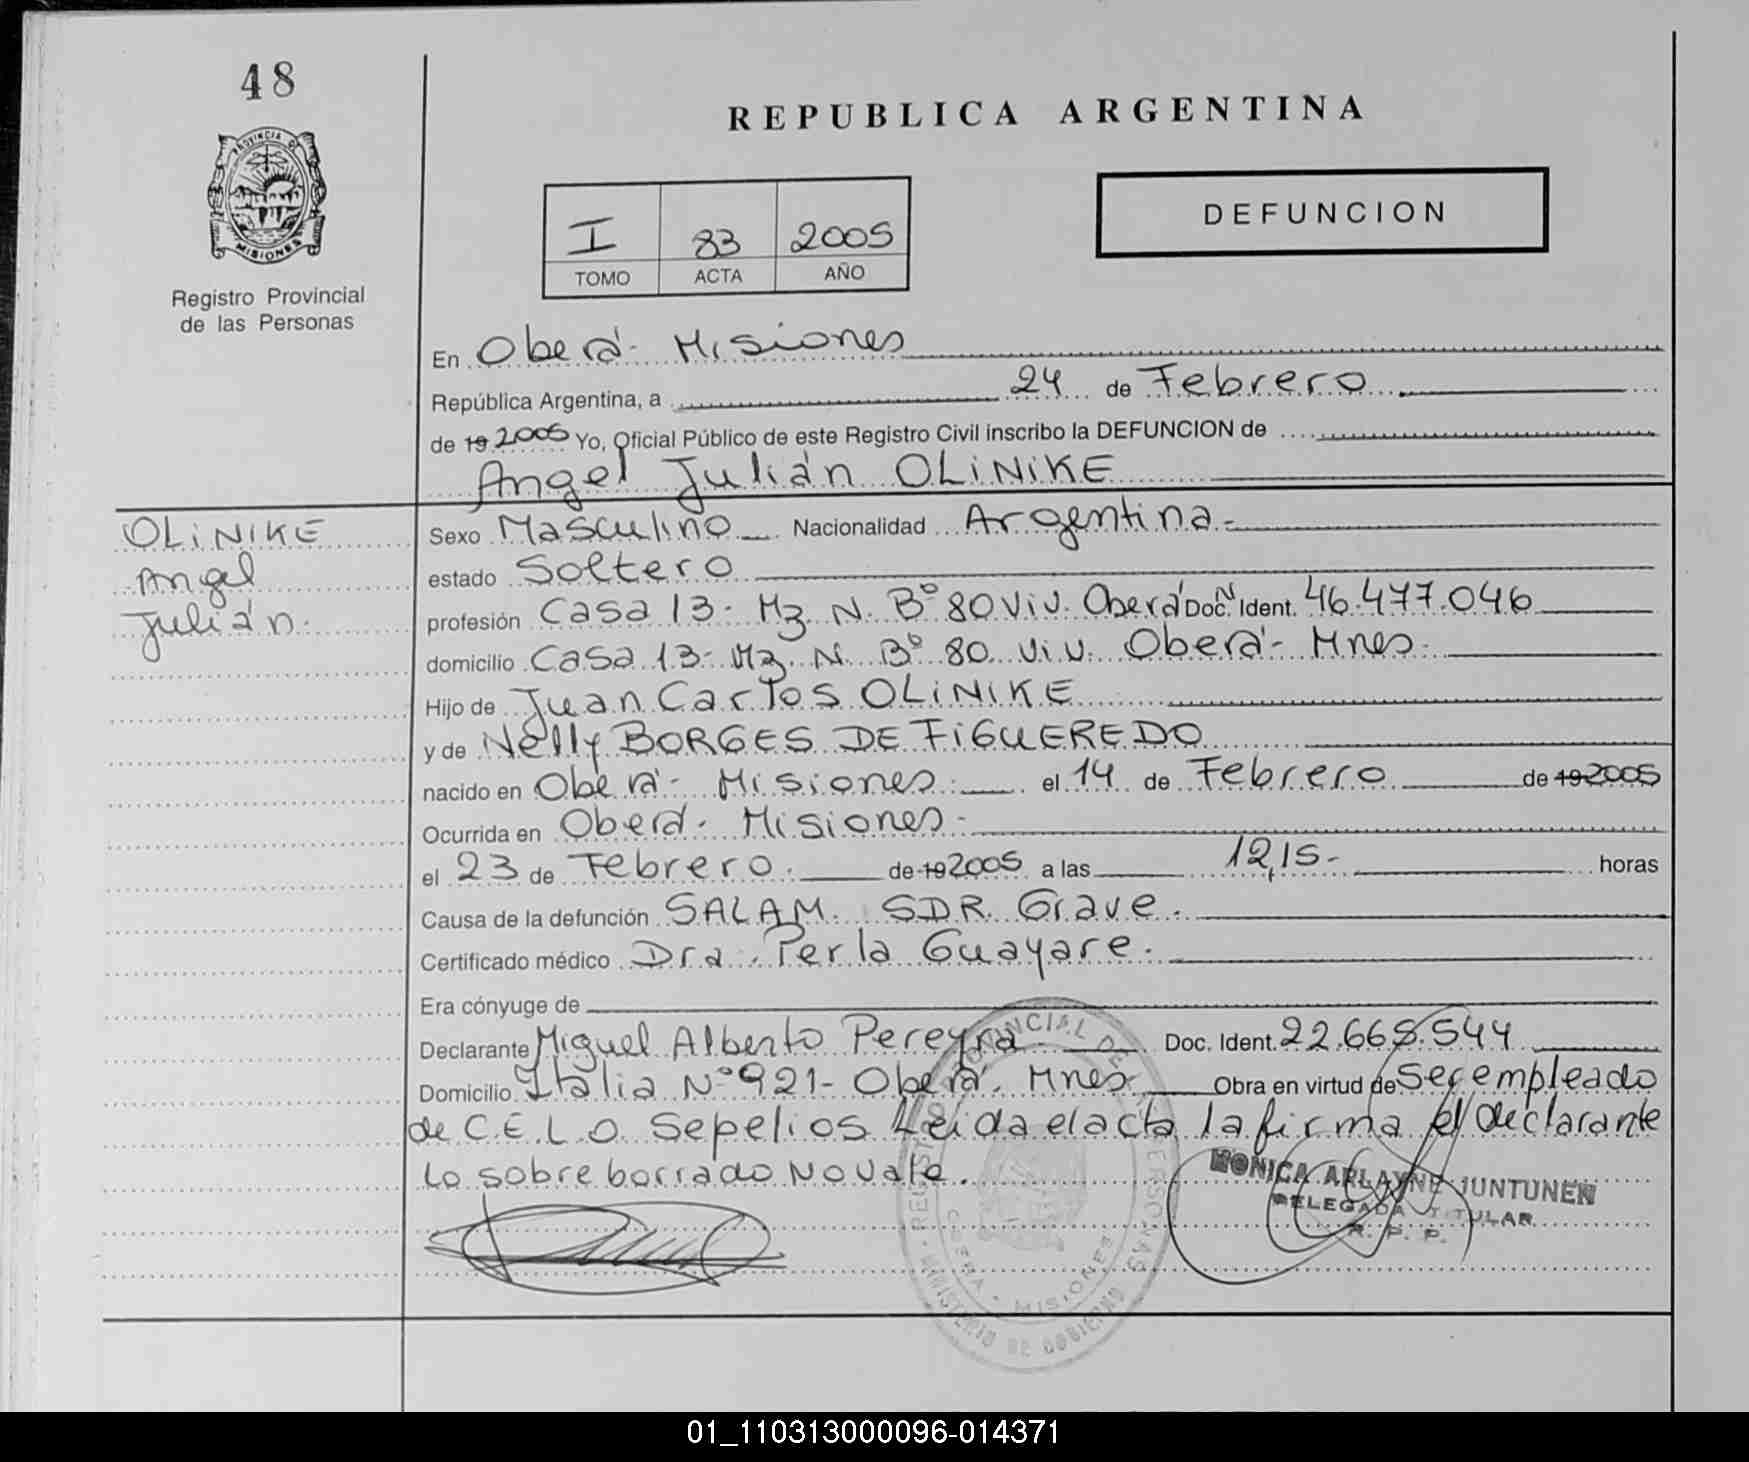 48
REPUBLICA ARGENTINA
PROVINCIA DE
MISIONES
Registro Provincial
de las Personas
DEFUNCION
I 83 2005
TOMO ACTA AÑO
En Oberá - Misiones
República Argentina, a 24 de Febrero
de 19 2005 Yo, Oficial Público de este Registro Civil inscribo la DEFUNCION de
Angel Julián OLiNiKE
OLiNIKE
Angel
Julián.
Sexo Masculino Nacionalidad Argentina.-
estado Soltero
profesión Casa 13- Mz N. Bº 80 Viv. Oberá Doc. Ident. 46.477.046
domicilio Casa 13- Mz N Bº 80 Viv. Oberá - Mnes.
Hijo de Juan Carlos OLiNIKE
y de Nelly BORGES DE FiGUEREDO
nacido en Oberá - Misiones. el 14 de Febrero de 19 2005
Ocurrida en Oberá. Misiones -
el 23 de Febrero. de 19 2005 a las 12,15- horas
Causa de la defunción SALAM. SDR Grave.
Certificado médico Dra. Perla Guayare.
Era cónyuge de
Declarante Miguel Alberto Pereyra Doc. Ident. 22.668.544
Domicilio Italia Nº 921- Oberá. Mnes. Obra en virtud de Ser empleado
de C.E.L.O Sepelios Leida el acta la firma el declarante
Lo sobre borrado NO Vale.
MONICA ARLAYNE JUNTUNEN
DELEGADA TITULAR
R. P. P.
REGISTRO PROVINCIAL DE LAS PERSONAS
OBERA - MISIONES
MINISTERIO DE GOBIERNO
01_110313000096-014371